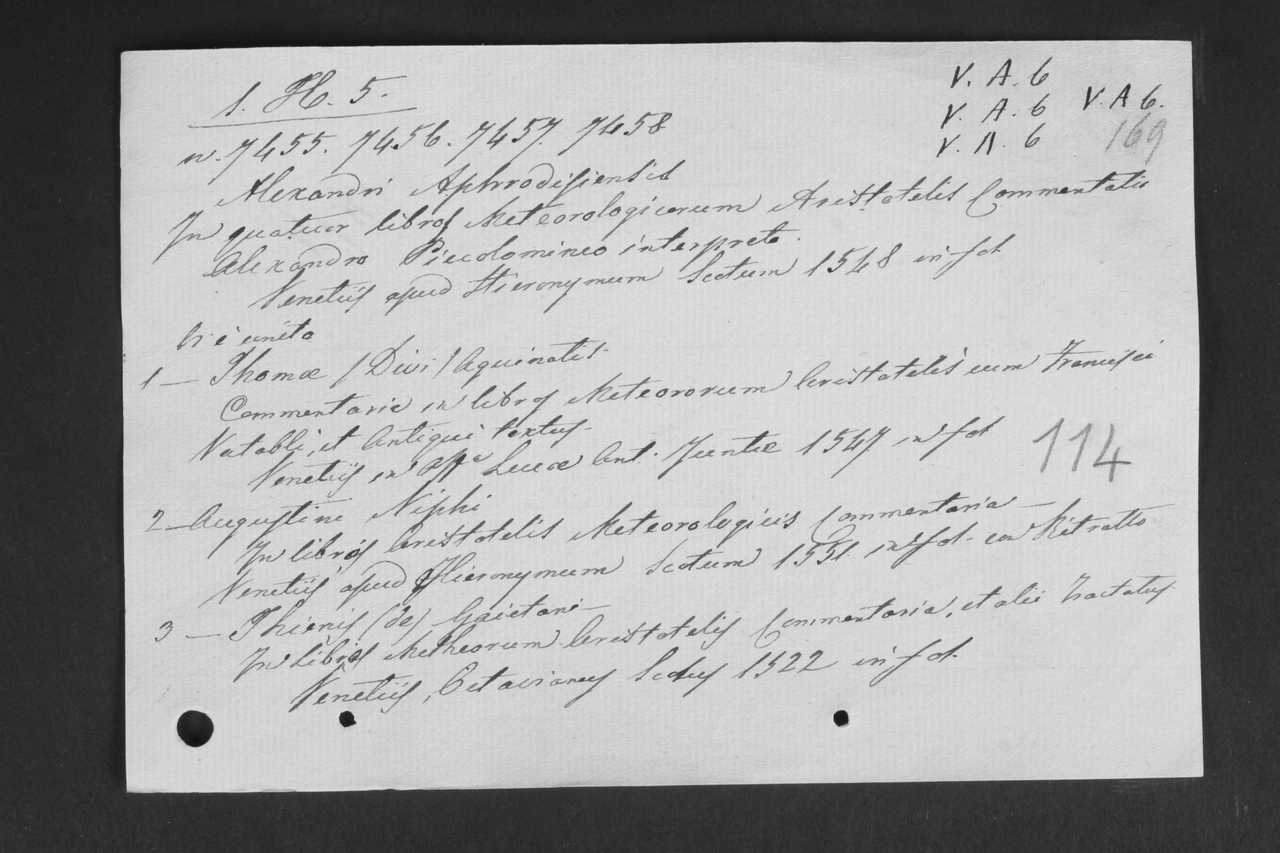 1. H. 5.
V. A. 6
V. A. 6 V. A 6.
V. A. 6
169
n. 7455. 7456. 7457. 7458
Alexandri Aphrodisiensis
In quatuor libros Meteorologicorum Aristotelis Commentatio
Alexandro Piccolomineo interprete.
Venetijs apud Hieronymum Scotum 1548 in fol
Vi è unito
1 — Thomæ (Divi) Aquinatis
Commentaria in libros Meteororum Aristotelis cum Francisci
Vatabli, et Antiqui textus.
Venetijs in Offa Lucæ Ant. Juntæ 1547 in fol
114
2 — Augustini Niphi
In libros Aristotelis Meteorologicis Commentaria —
Venetijs apud Hieronymum Scotum 1551. in fol. con Ritratto
3 — Thienis (de) Gaietani —
In libros Metheorum Aristotelis Commentaria, et alii Tractatus
Venetijs, Octavianus Scotus 1522 in fol.